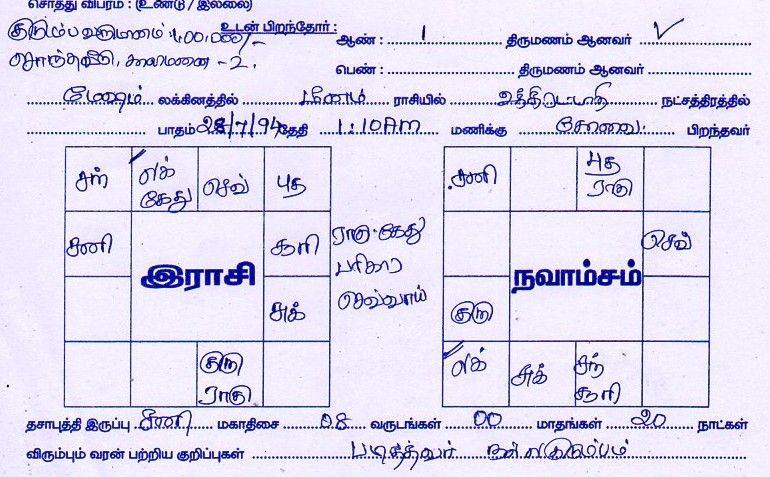 சொத்து விபரம் : (உண்டு / இல்லை)
குடும்ப வருமானம் : 400,000/- உடன் பிறந்தோர் : ஆண் : 1 திருமணம் ஆனவர் ✓
சொந்தவீடு, காலிமனை - 2. பெண் : திருமணம் ஆனவர்
மேஷம் லக்கினத்தில் மீனம் ராசியில் உத்திரட்டாதி நட்சத்திரத்தில்
பாதம் 28/7/94 தேதி 1:10 AM மணிக்கு பிறந்தவர்
சந் லக் கேது செவ் புத
சனி சூரி
சுக்
குரு ராகு
இராசி
ராகு-கேது
பரிகார
செவ்வாய்
சனி புத ராகு
செவ்
குரு
லக் சுக் சந் சூரி
நவாம்சம்
தசாபுத்தி இருப்பு சனி மகாதிசை 08 வருடங்கள் 00 மாதங்கள் 20 நாட்கள்
விரும்பும் வரன் பற்றிய குறிப்புகள் படித்தவர் நல்ல குடும்பம்